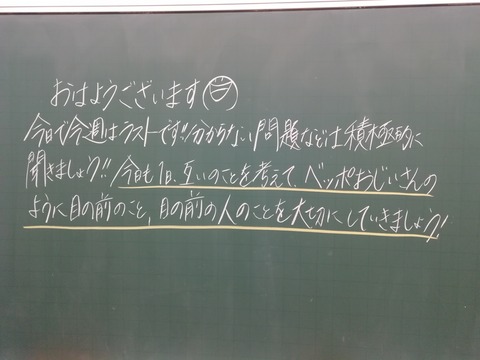 おはようございます
今日で今週はラストです!!分からない問題などは積極的に
聞きましょう!!今日も1日、互いのことを考えて、ベッポおじいさんの
ように目の前のこと、目の前の人のことを大切にしていきましょう!